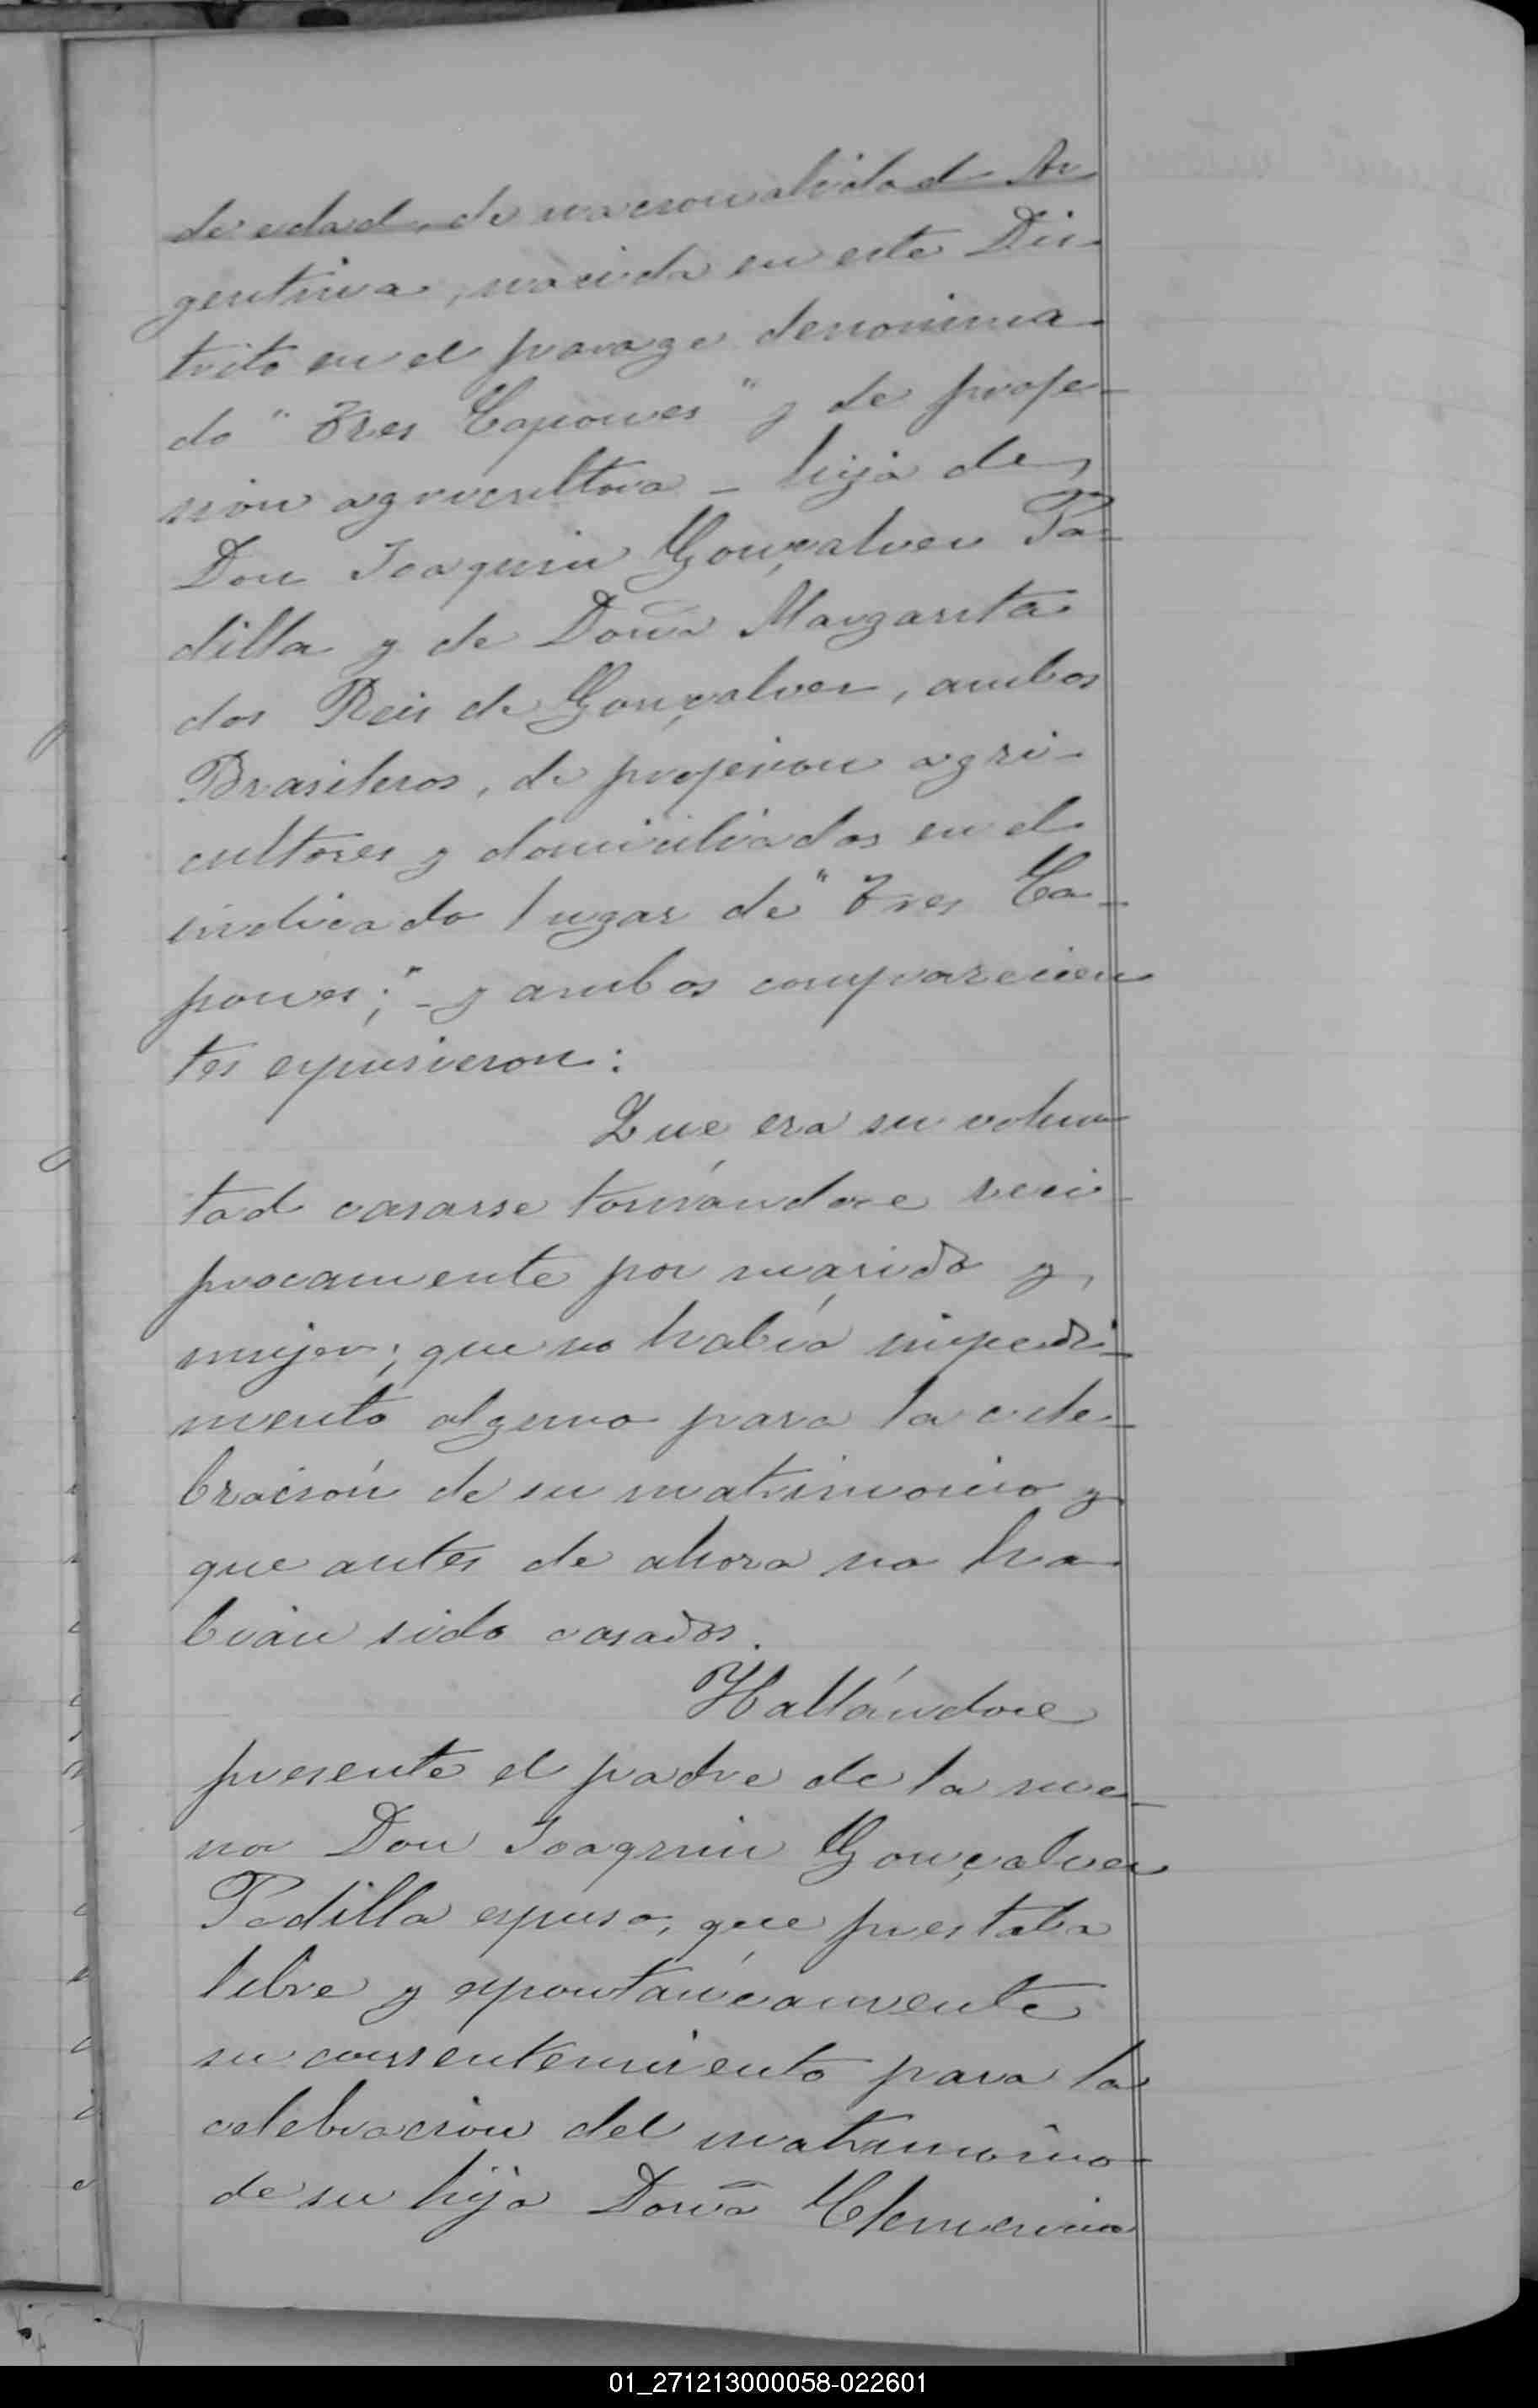 de edad, de nacionalidad Ar
gentina, nacida en este Dis-
trito en el parage denomina-
do "Tres Capones" y de profe-
sion agricultora - hija de
Don Joaquin Gonçalves Pa-
dilla y de Doña Margarita
dos Reis de Gonçalves, ambos
Brasileros, de profesion agri-
cultores y domiciliados en el
indicado lugar de "Tres Ca-
pones;" - y ambos comparecien
tes espusieron:
Que era su volun
tad casarse tomándose reci-
procamente por marido y
mujer; que no había impedi-
mento alguno para la cele-
bración de su matrimonio y
que antes de ahora no ha-
bían sido casados.
Hallándose
presente el padre de la me-
nor Don Joaquin Gonçalves
Padilla espuso, que prestaba
libre y espontáneamente
su consentemiento para la
celebracion del matrimonio
de su hija Doña Clemencia
01_271213000058-022601